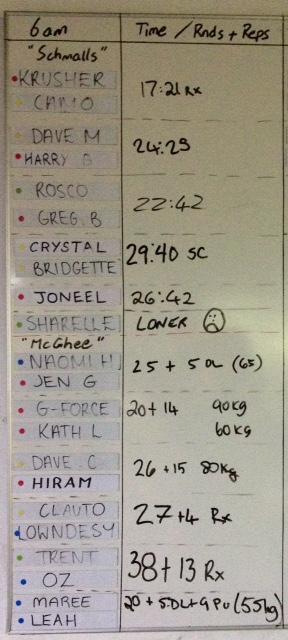 6am Time / Rnds + Reps
"Schmalls"
KRUSHER
CAMO
17:21 Rx
DAVE M
HARRY B
24:29
ROSCO
GREG. B
22:42
CRYSTAL
BRIDGETTE
29:40 SC
JONEEL 26:42
SHARELLE LONER
"McGhee"
NAOMI H
JEN G
25 + 5 DL (65)
G-FORCE 20+14 90kg
KATH L 60kg
DAVE C
HIRAM
26+15 80kg
CLAUTO
LOWNDESY
27+4 Rx
TRENT
OZ
38+13 Rx
MAREE
LEAH
20 + 5DL+9PU (55kg)